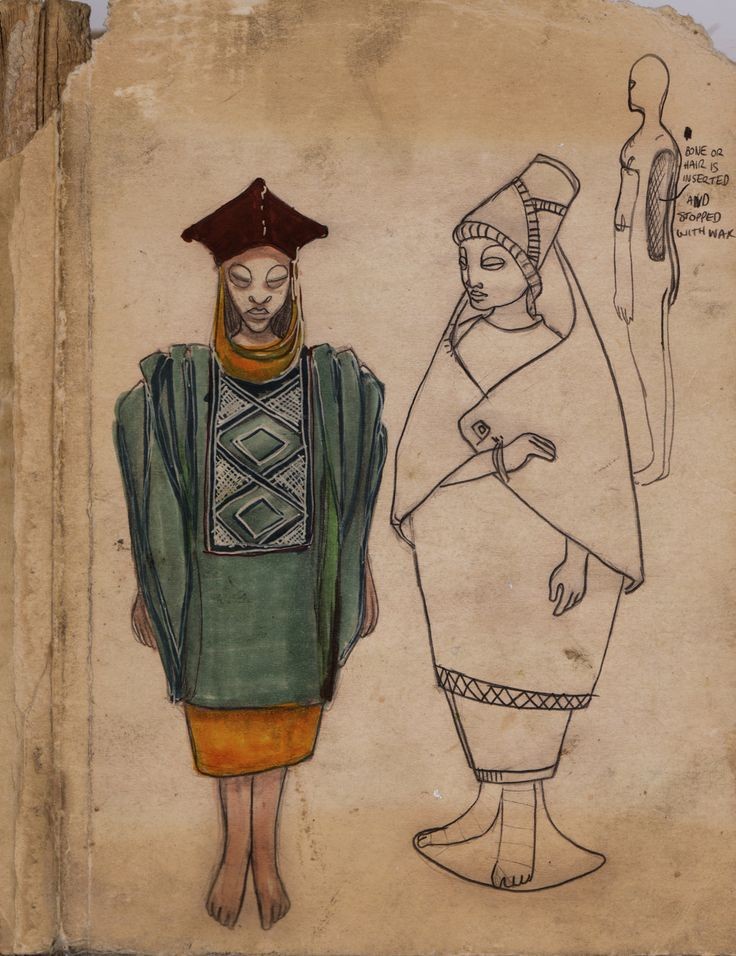 BONE OR
HAIR IS
INSERTED
AND
STOPPED
WITH WAX